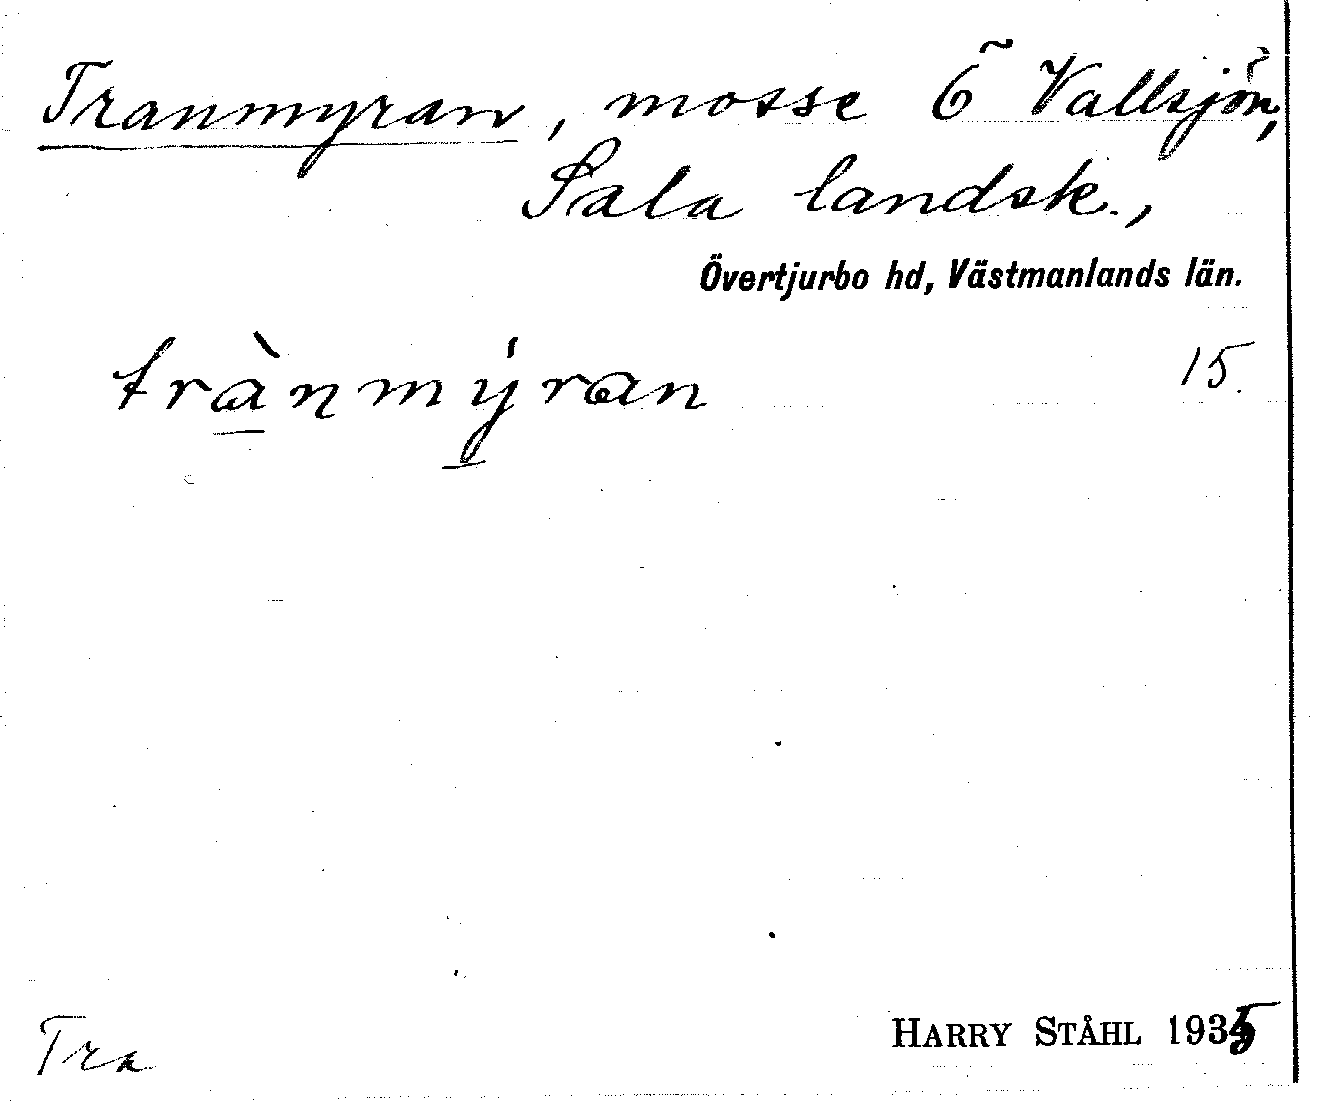 Tranmyran, mosse Ö Vallsjön,
Sala landsk.,
Övertjurbo hd, Västmanlands län.
trànmy̍ran 15.
Tra
HARRY STÅHL 1935